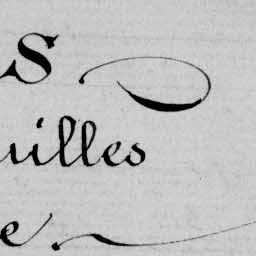 S
uilles
e.